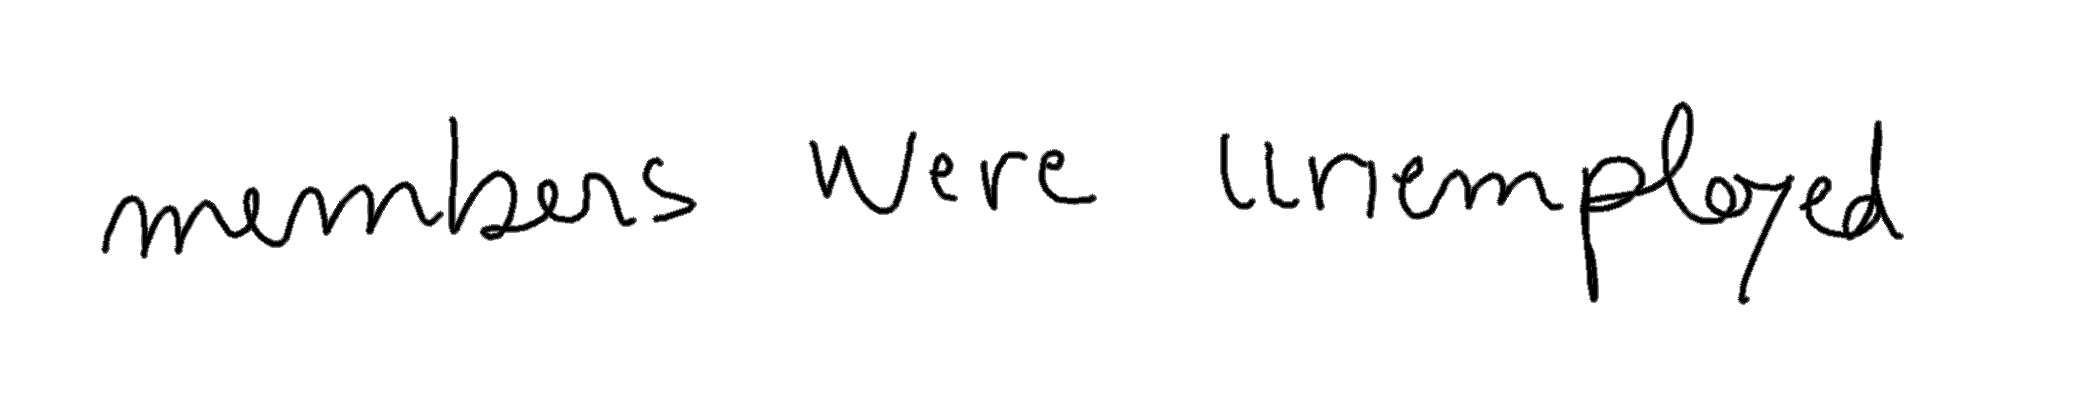 members were unemployed